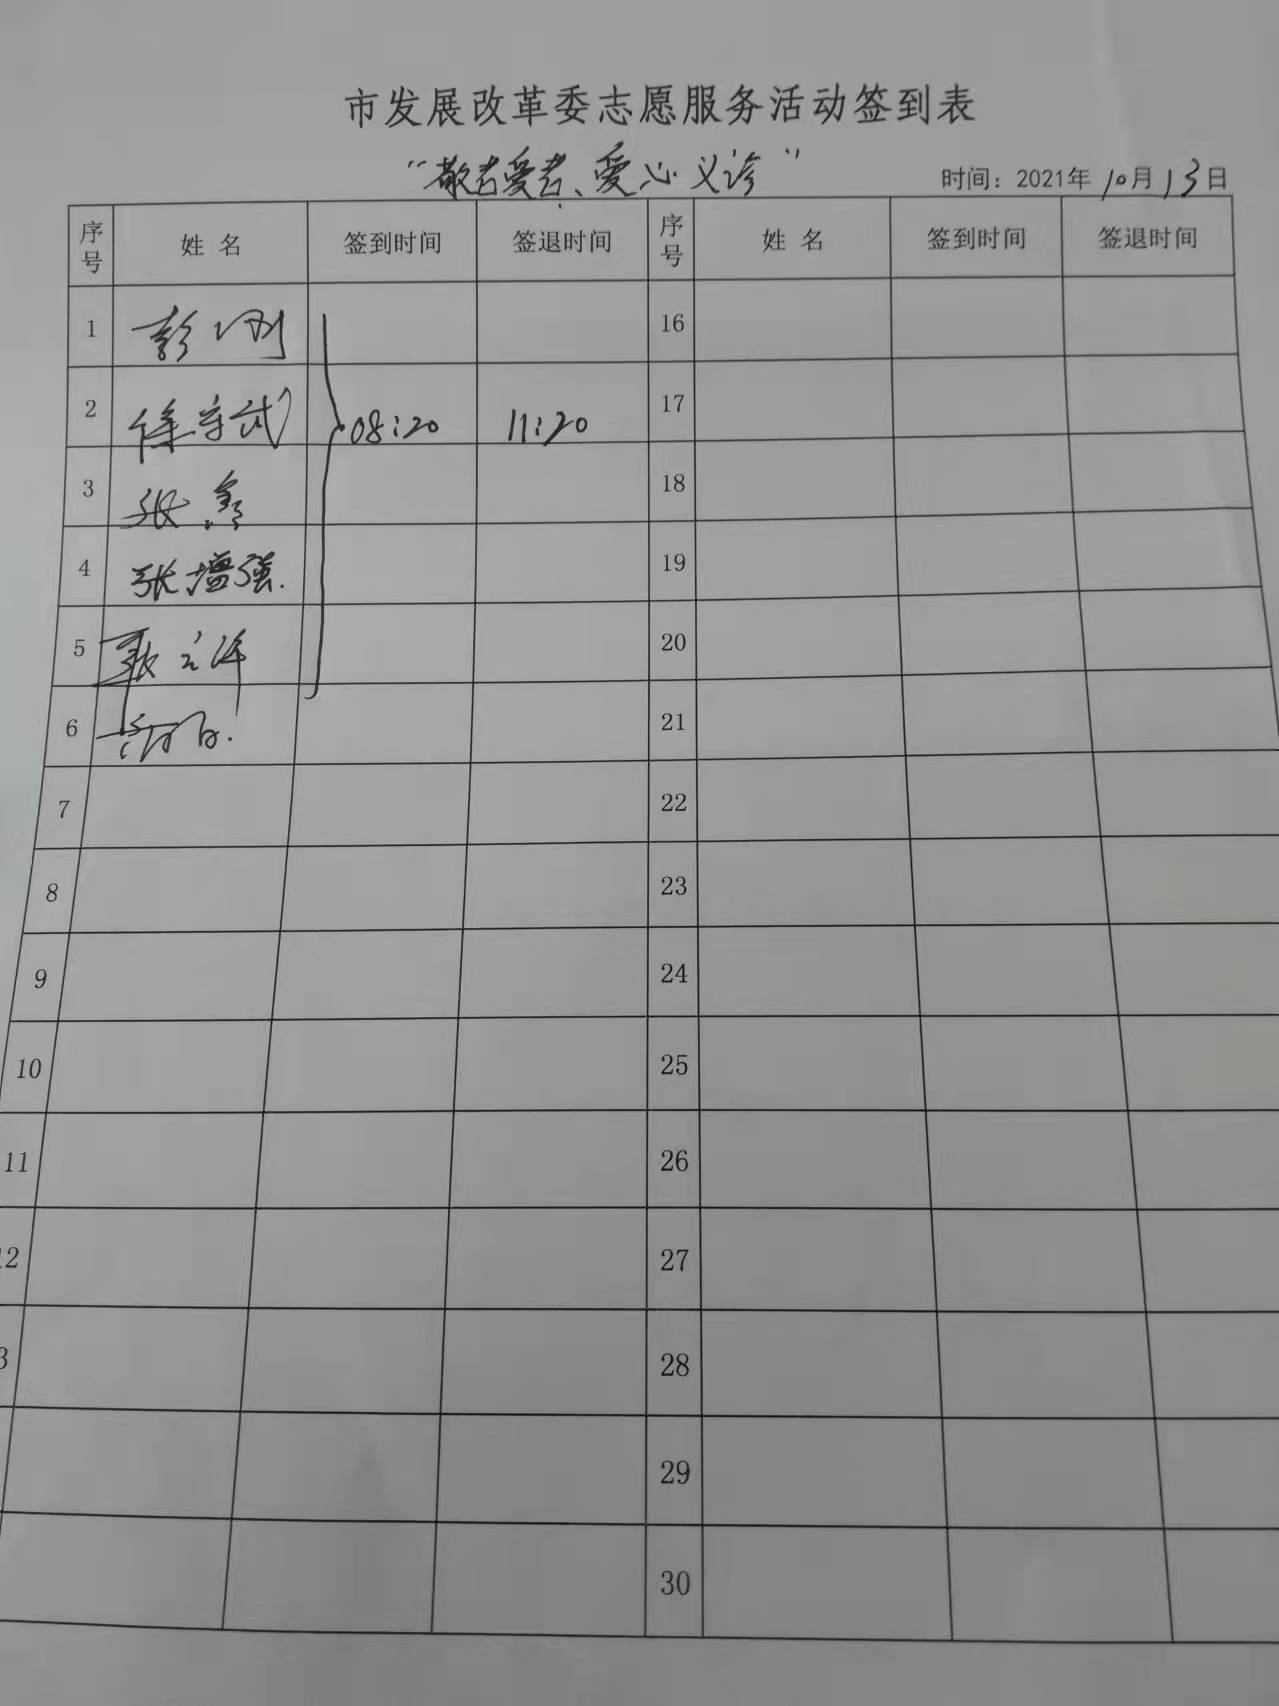 市发展改革委志愿服务活动签到表
“敬老爱老、爱心义诊”
时间：2021年10月13日
序号 姓 名 签到时间 签退时间 序号 姓 名 签到时间 签退时间
1 彭刚 16
2 徐守武 08:20 11:20 17
3 张鑫 18
4 张增强. 19
5 20
6 21
7 22
8 23
9 24
10 25
11 26
12 27
3 28
29
30